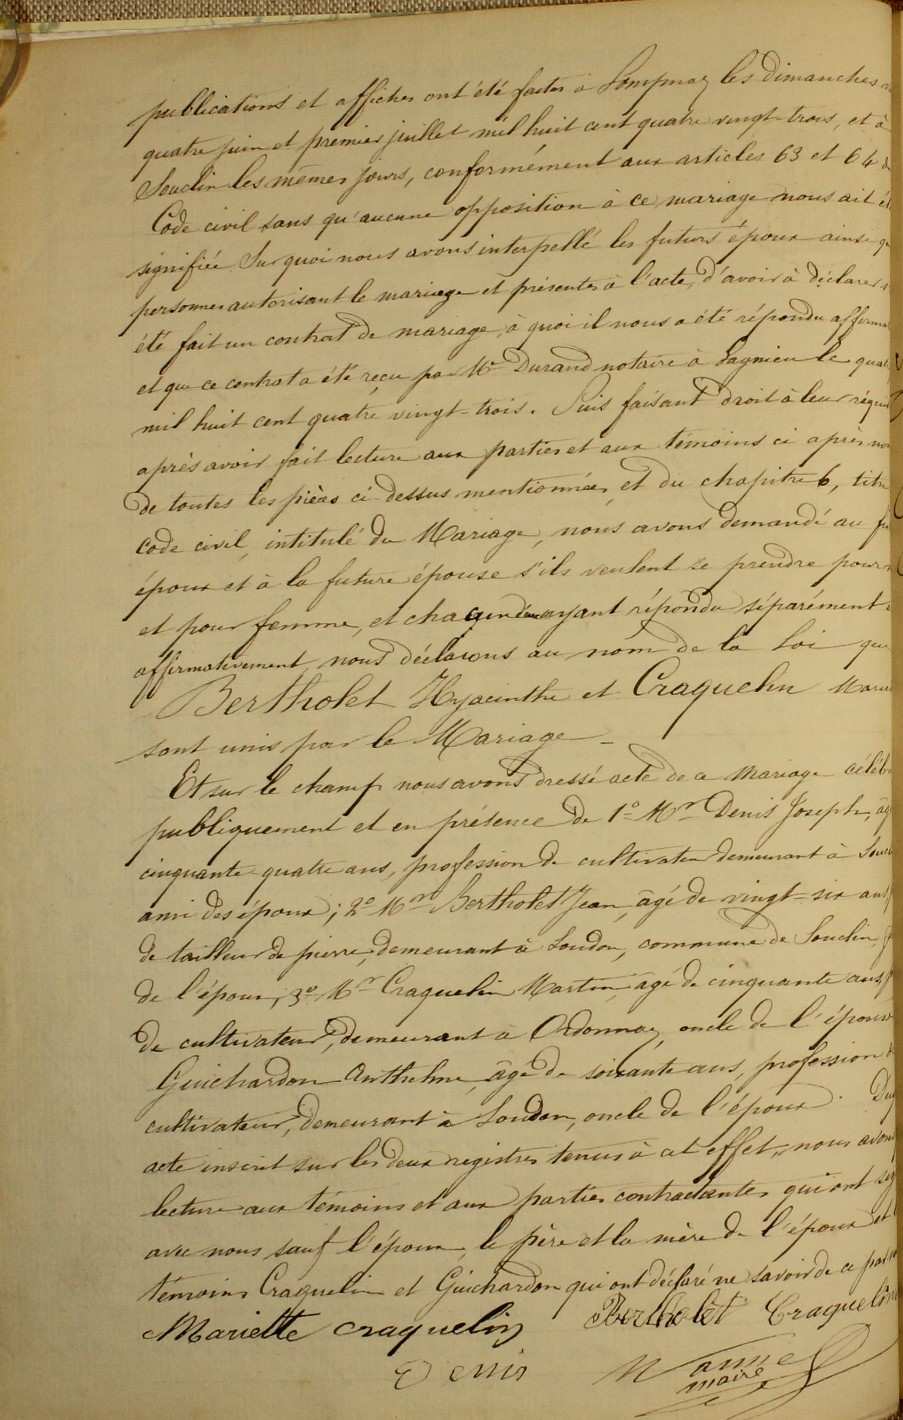 publications et affiches ont été faites à Lompnaz les dimanches
quatre juin et premier juillet mil huit cent quatre vingt-trois, et à
Souclin les mêmes jours, conformément aux articles 63 et 64 du
Code civil sans qu'aucune opposition à ce mariage nous ait ét
signifiée. Sur quoi nous avons interpellé les futurs époux ainsi qu
personnes autorisant le mariage et présentes à l'acte, d'avoir à déclarer s
été fait un contrat de mariage, à quoi il nous a été répondu affirma
et que ce contrat a été reçu par Me Durand notaire à Lagnieu le quat
mil huit cent quatre vingt-trois. Puis faisant droit à leur réqui
après avoir fait lecture aux parties et aux témoins ci après no
de toutes les pièces ci-dessus mentionnées, et du chapitre 6, titre
code civil, intitulé du Mariage, nous avons demandé au fu
époux et à la future épouse s'ils veulent se prendre pour
et pour femme, et chacun d'eux ayant répondu séparément
affirmativement, nous déclarons au nom de la Loi que
Bertholet Hyacinthe et Craquelin Marie
sont unis par le Mariage –
Et sur le champ nous avons dressé acte de ce mariage céléb
publiquement et en présence de 1° Mr Denis Joseph, âg
cinquante quatre ans, profession de cultivateur demeurant à Souc
ami des époux; 2° Mr Bertholet Jean, âgé de vingt-six ans,
de tailleur de pierre, demeurant à Soudon, commune de Souclin, f
de l'époux; 3° Mr Craquelin Martin âgé de cinquante ans, p
de cultivateur, demeurant à Ordonnaz, oncle de l'épouse
Guichardon Anthelme, âgé de soixante ans, profession d
cultivateur, demeurant à Soudon, oncle de l'époux. Duq
acte inscrit sur les deux registres tenus à cet effet, nous avons
lecture aux témoins et aux parties contractantes qui ont sig
avec nous sauf l'époux, le père et la mère de l'époux et
témoins Craquelin et Guichardon qui ont déclaré ne savoir de ce fai
Mariette craquelin Bertholet Craquelin
Denis
maire